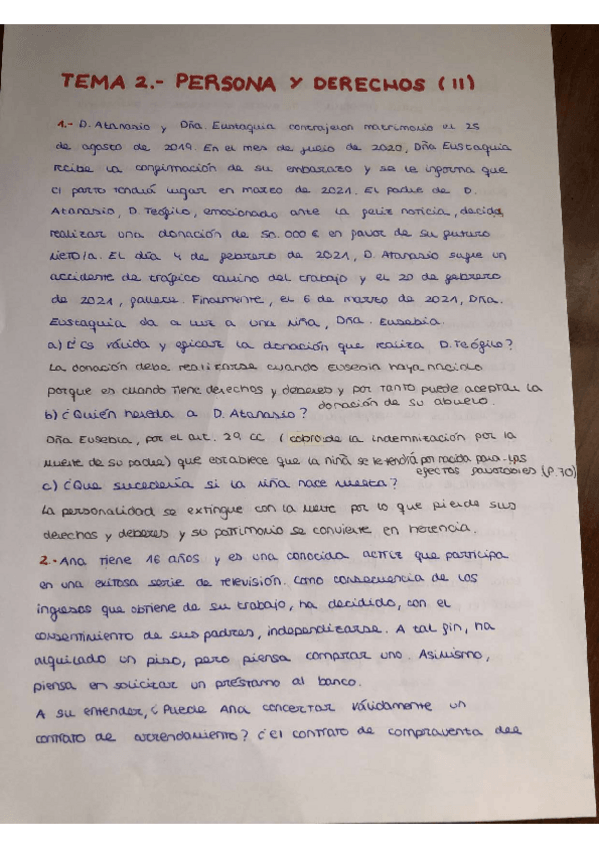 TEMA 2.- PERSONA Y DERECHOS (II)
1.- D. Atanasio y Dña. Eustaquia contrajeron matrimonio el 25
de agosto de 2019. En el mes de julio de 2020, Dña Eustaquia
recibe la confirmación de su embarazo y se le informa que
el parto tendrá lugar en marzo de 2021. El padre de D.
Atanasio, D. Teófilo, emocionado ante la feliz noticia, decide
realizar una donación de 50.000 € en favor de su futuro
nieto/a. El día 4 de febrero de 2021, D. Atanasio sufre un
accidente de tráfico camino del trabajo y el 20 de febrero
de 2021, fallece. Finalmente, el 6 de marzo de 2021, Dña.
Eustaquia da a luz a una niña, Dña. Eusebia.
a) ¿Es válida y eficaz la donación que realiza D. Teófilo?
La donación debe realizarse cuando Eusebia haya nacido
porque es cuando tiene derechos y deberes y por tanto puede aceptar la
donación de su abuelo.
b) ¿Quién hereda a D. Atanasio?
Dña Eusebia, por el art. 29 CC (cobro de la indemnización por la
muerte de su padre) que establece que la niña se le tendrá por nacida para los
efectos favorables (p.70)
c) ¿Qué sucedería si la niña nace muerta?
La personalidad se extingue con la muerte por lo que pierde sus
derechos y deberes y su patrimonio se convierte en herencia.
2.- Ana tiene 16 años y es una conocida actriz que participa
en una exitosa serie de televisión. Como consecuencia de los
ingresos que obtiene de su trabajo, ha decidido, con el
consentimiento de sus padres, independizarse. A tal fin, ha
alquilado un piso, pero piensa comprar uno. Asimismo,
piensa en solicitar un préstamo al banco.
A su entender, ¿Puede Ana concertar válidamente un
contrato de arrendamiento? ¿el contrato de compraventa del